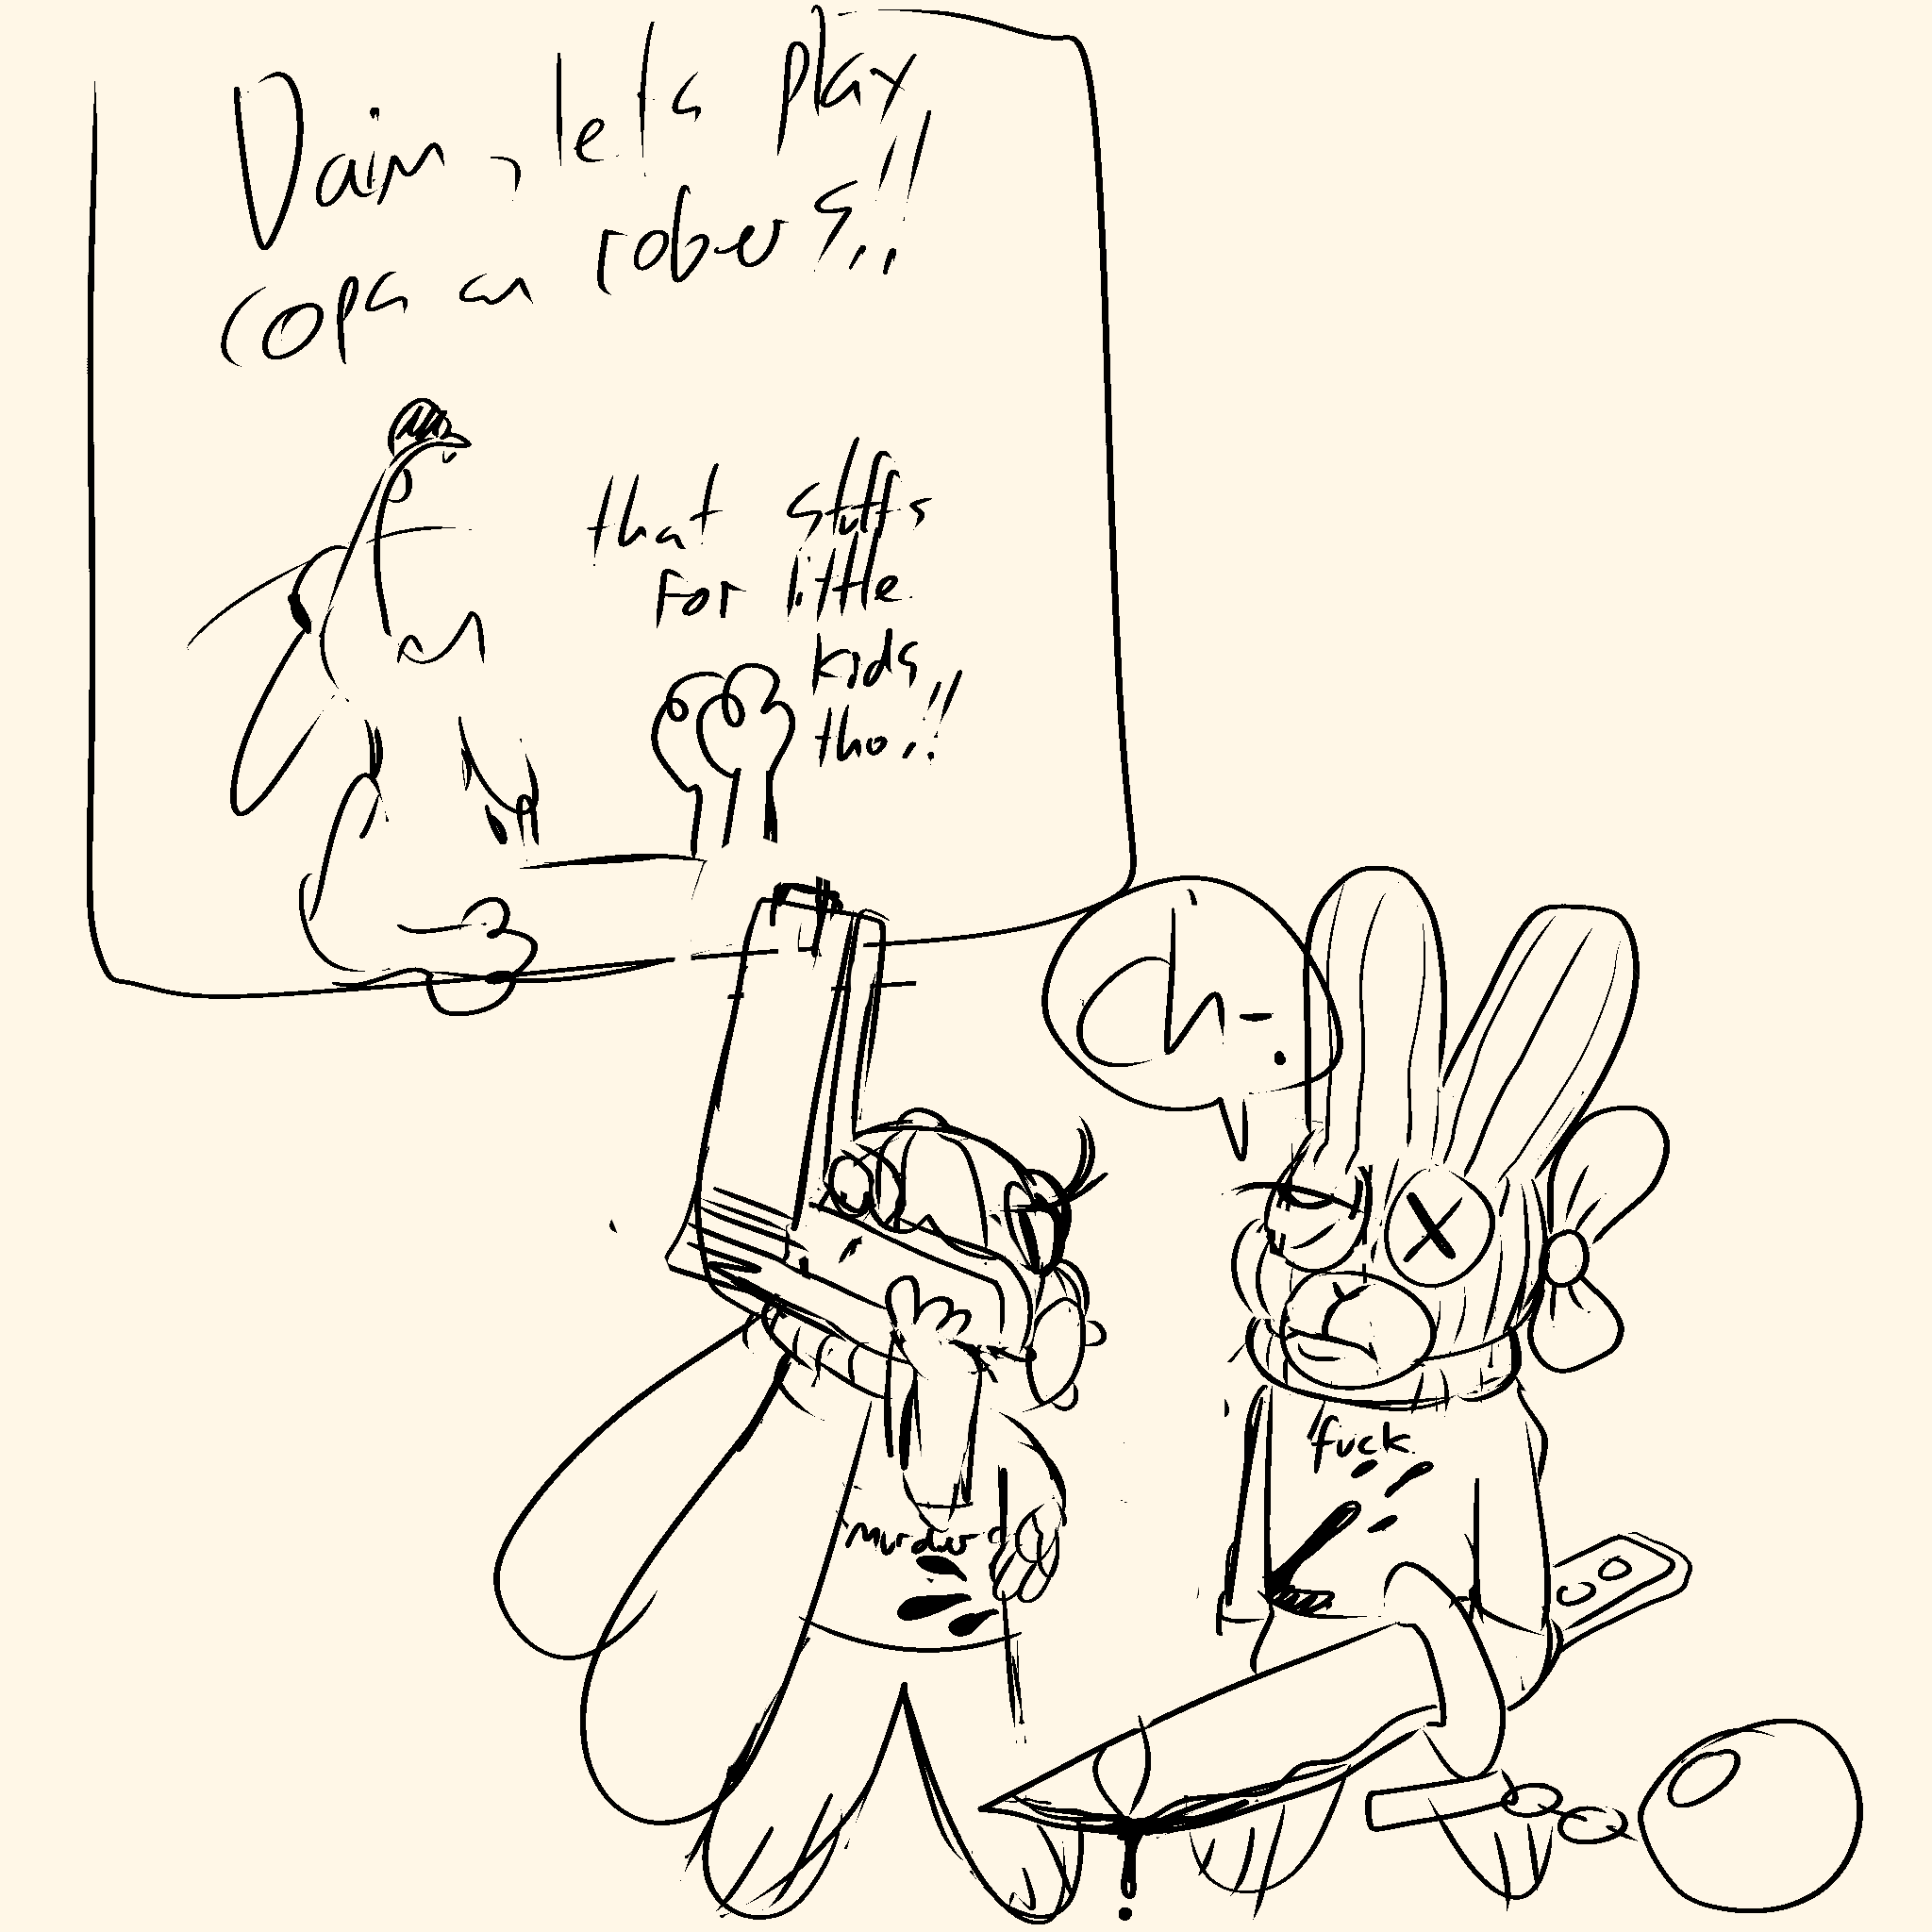 Dain, lets play
cops an robers!!
that stuffs
for little
kids
tho!!
oh-.
fuck.
murder